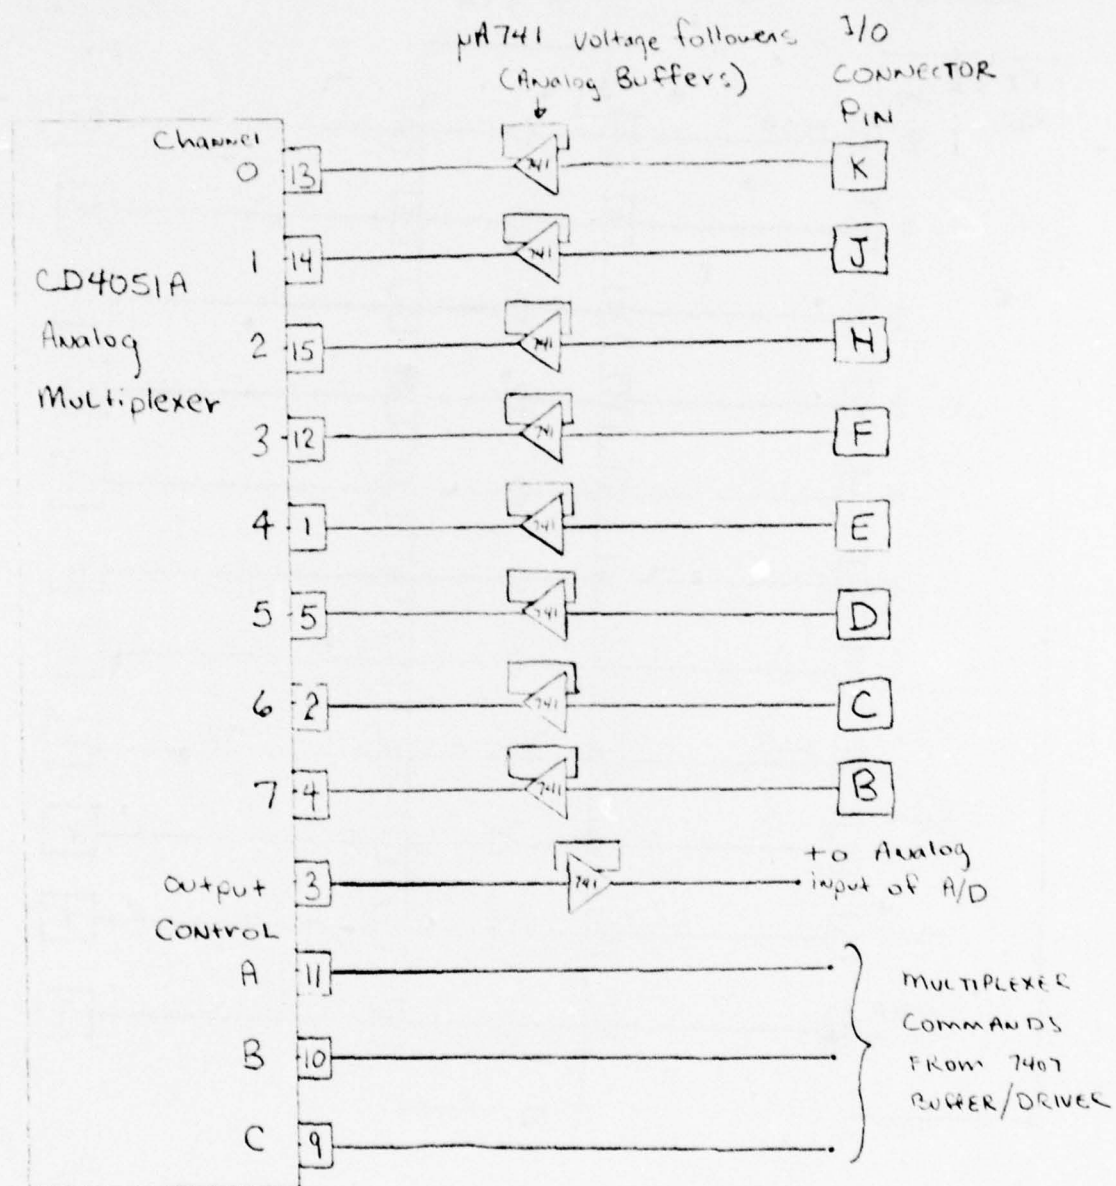 μA741 Voltage followers
(Analog Buffers)
I/O
CONNECTOR
PIN
Channel
0 13 741 K
1 14 741 J
CD4051A
Analog
Multiplexer
2 15 741 H
3 12 741 F
4 1 741 E
5 5 741 D
6 2 741 C
7 4 741 B
output 3 741 to Analog
input of A/D
CONTROL
A 11
B 10
C 9
MULTIPLEXER
COMMANDS
FROM 7407
BUFFER/DRIVER